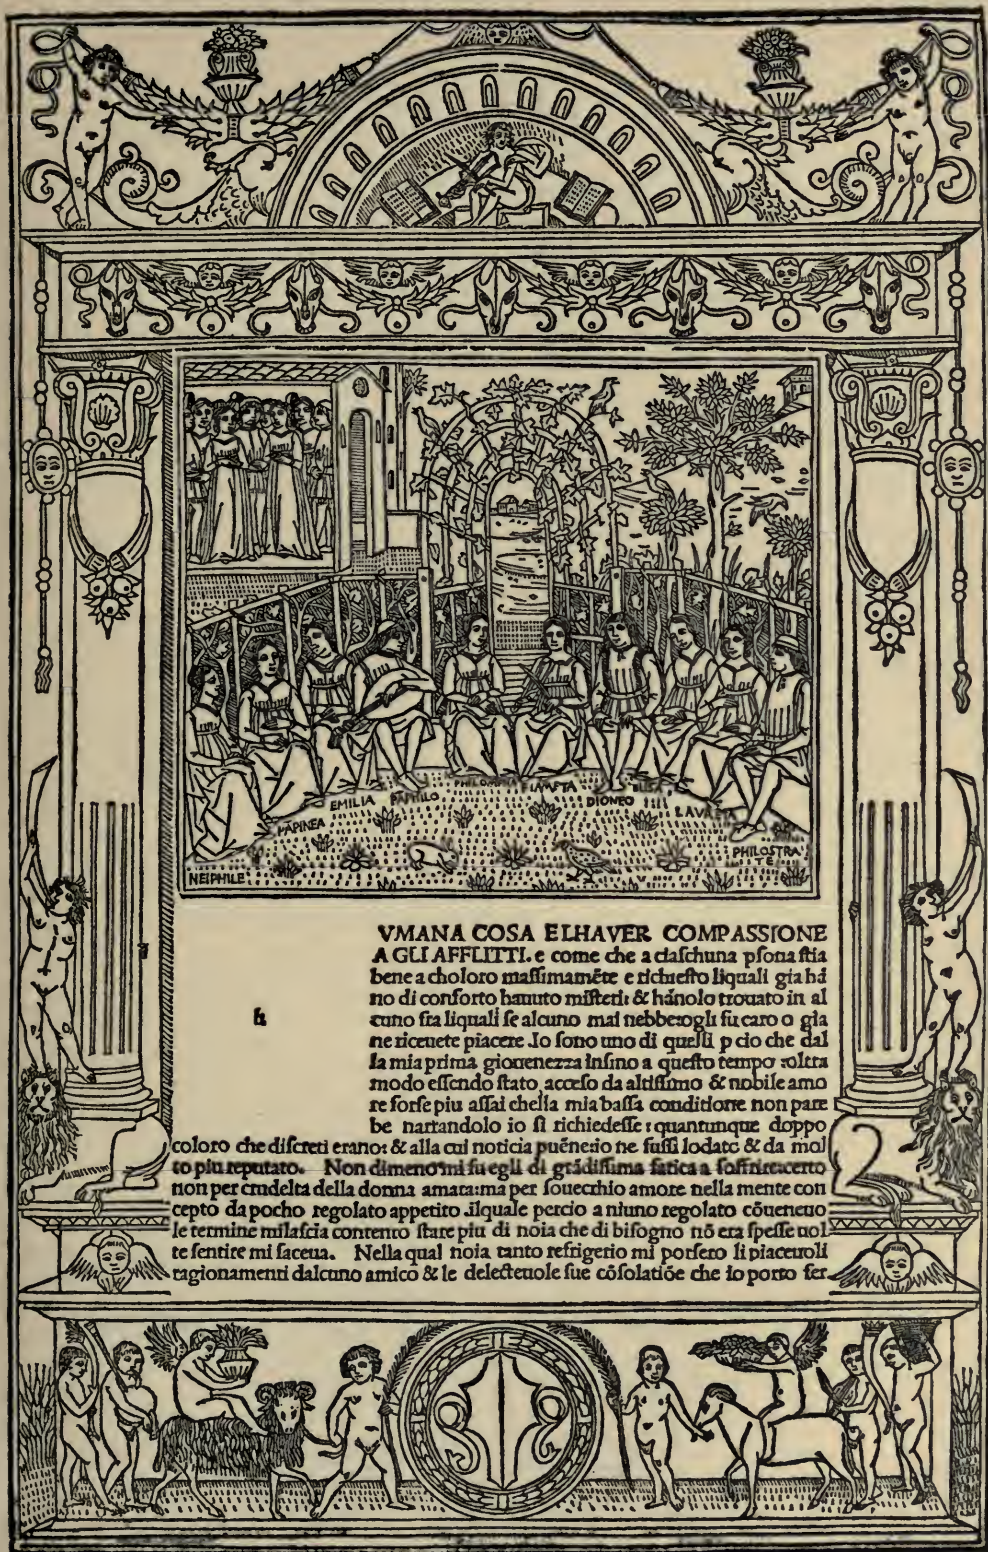 EMILIA PAPHILO PHILOMENA FIAMETA DIONEO ELISA LAVRE
PAPINEA
PHILOSTRA
TE
NEIPHILE
VMANA COSA ELHAVER COMPASSIONE
A GLI AFFLITTI. e come che a ciaſchuna pſona ſtia
bene a choloro maſſimamēte e richieſto liquali gia hā
no di conforto hauuto miſtieri: & hānolo trouato in al
cuno fra liquali ſe alcuno mai nebbe: ogli fu caro o gia
ne riceuete piacere .Io ſono uno di quelli p cio che dal
la mia prima giouenezza inſino a queſto tempo :oltra
modo eſſendo ſtato acceſo da altiſſimo & nobile amo
re forſe piu aſſai chella mia baſſa conditione non pare
be narrandolo io ſi richiedeſſe: quantunque doppo
coloro che diſcreti erano: & alla cui noticia puēnerio ne fuſſi lodato & da mol
to piu reputato. Non dimeno mi fu egli di grādiſſima fatica a ſoffrire: certo
non per crudelta della donna amata: ma per ſouecchio amore nella mente con
cepto da pocho regolato appetito .ilquale percio a niuno regolato cōueneuo
le termine milaſcia contento ſtare piu di noia che di biſogno nō era ſpeſſe uol
te ſentire mi faceua. Nella qual noia tanto refrigerio mi porſero li piaceuoli
ragionamenti dalcuno amico & le delecteuole ſue cōſolatiōe che io porto fer